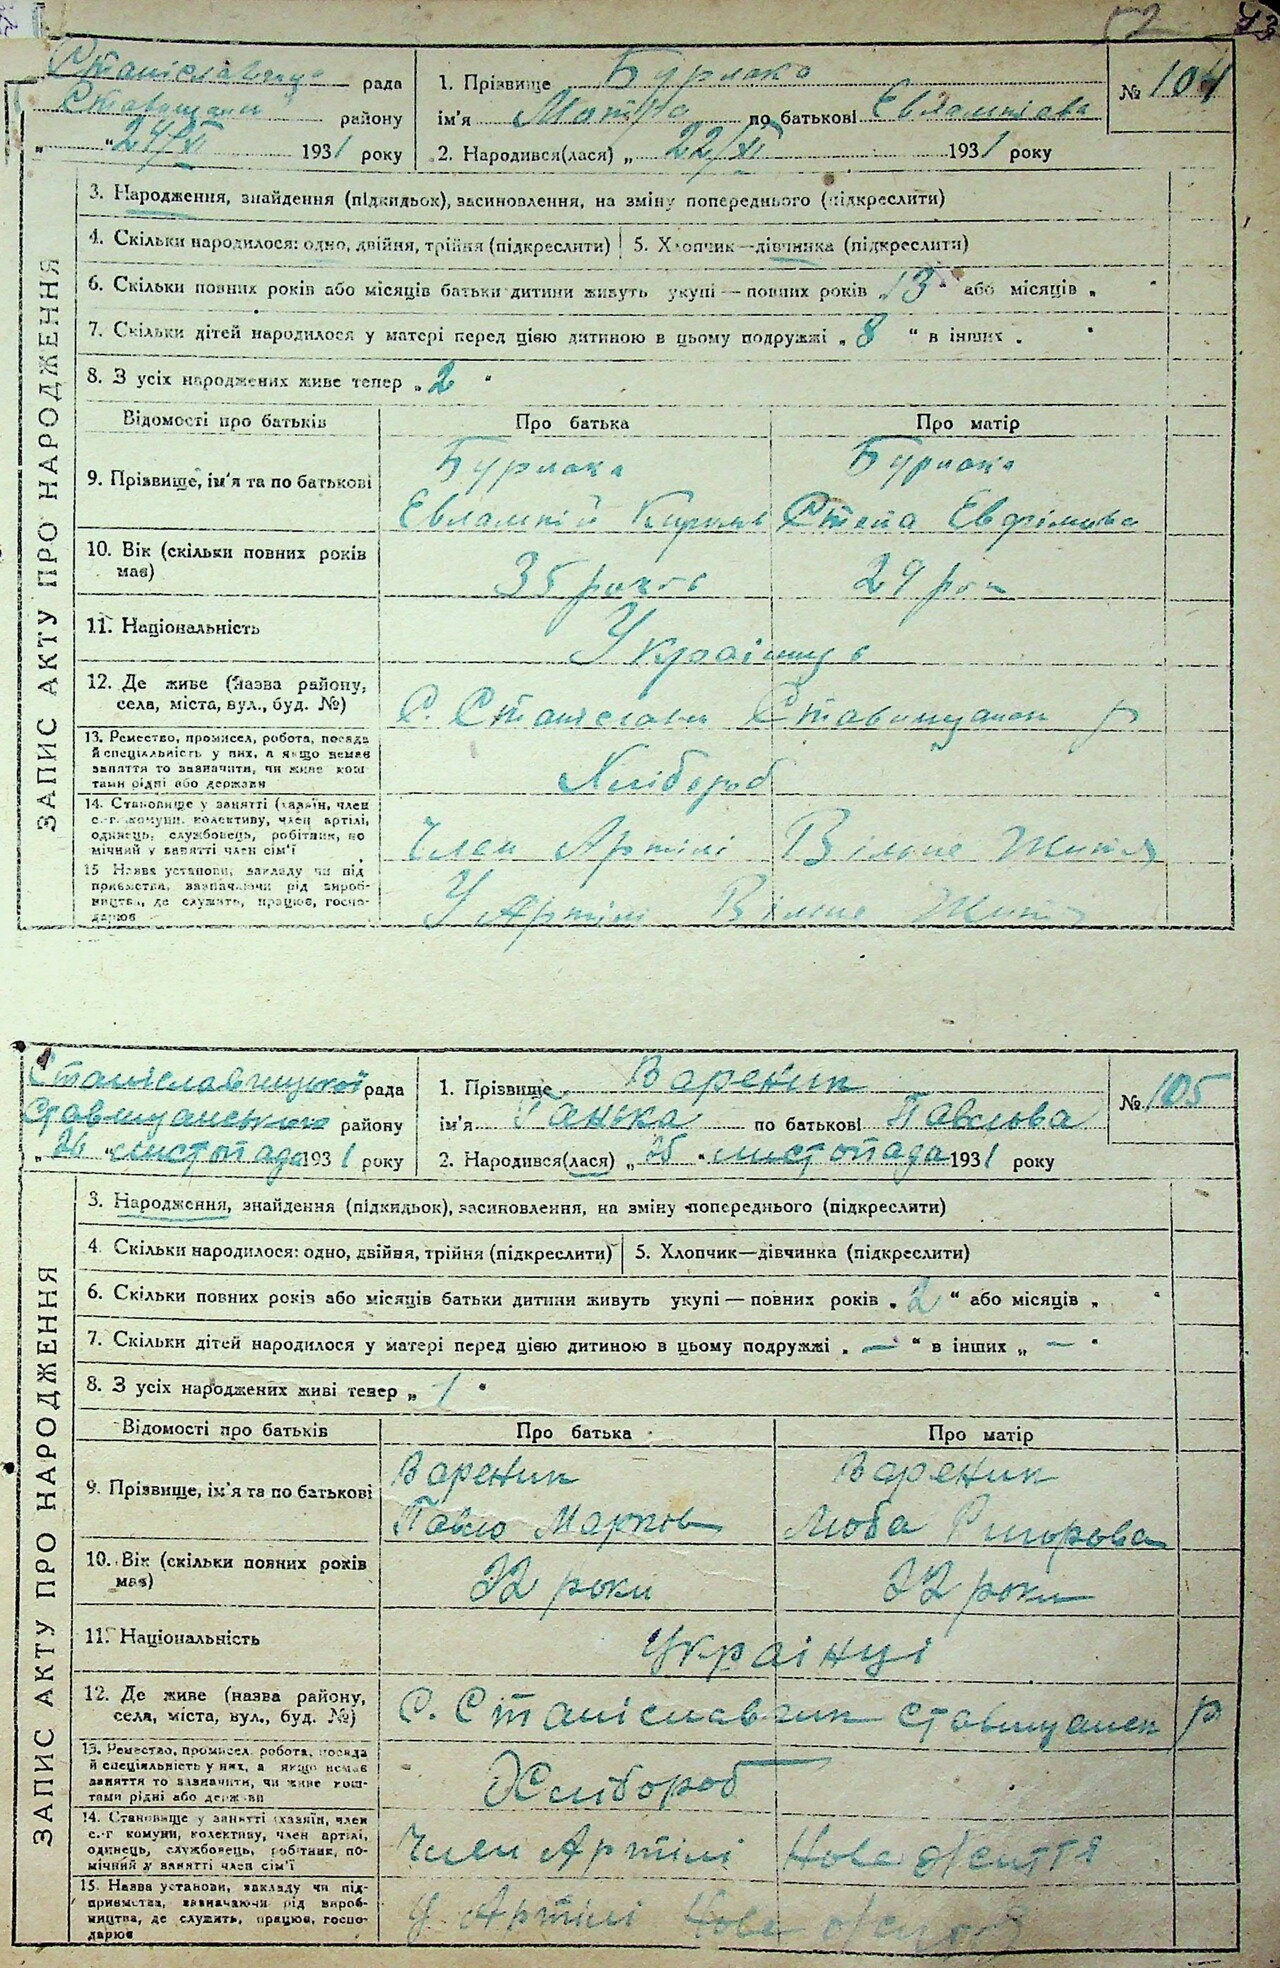 52 43
рада
району
„ “ 24/XI 1931 року
1. Прізвище Бурлака
ім'я Мотря по батькові Евлампієва
№ 104
2. Народився(лася) „ 22/XI 1931 року
ЗАПИС АКТУ ПРО НАРОДЖЕННЯ
3. Народження, знайдення (підкидьок), засиновлення, на зміну попереднього (підкреслити)
4. Скільки народилося: одно, двійня, трійня (підкреслити) 5. Хлопчик—дівчинка (підкреслити)
6. Скільки повних років або місяців батьки дитини живуть укупі — повних років „ 13 “ або місяців „ “
7. Скільки дітей народилося у матері перед цією дитиною в цьому подружжі „ 8 “ в інших „ “
8. З усіх народжених живе тепер „ 2 “
Відомості про батьків Про батька Про матір
9. Прізвище, ім'я та по батькові
Бурлака Бурлака
Евлампій Степа Евфімова
10. Вік (скільки повних років має)
35 років 29 рок
11. Національність
Українці
12. Де живе (назва району, села, міста, вул., буд. №)
С. Ставищанск р
13. Ремество, промисел, робота, посада й спеціяльність у них, а якщо немає заняття то зазначити, чи живе коштами рідні або держави
Хлібороб
14. Становище у занятті (хазяїн, член с.-г. комуни, колективу, член артілі, одинець, службовець, робітник, помічний у занятті член сім'ї
Член Артілі Вільне Життя
15. Назва установи, закладу чи підприємства, зазначаючи рід виробництва, де служить, працює, господарює
У Артілі Вільне Життя
Станіславчицької рада
Ставищанського району
„ 26 “ листопада 1931 року
1. Прізвище Вареник
ім'я Ганька по батькові Павлова
№ 105
2. Народився(лася) „ 25 “ листопада 1931 року
ЗАПИС АКТУ ПРО НАРОДЖЕННЯ
3. Народження, знайдення (підкидьок), засиновлення, на зміну попереднього (підкреслити)
4. Скільки народилося: одно, двійня, трійня (підкреслити) 5. Хлопчик—дівчинка (підкреслити)
6. Скільки повних років або місяців батьки дитини живуть укупі — повних років „ 2 “ або місяців „ “
7. Скільки дітей народилося у матері перед цією дитиною в цьому подружжі „ — “ в інших „ — “
8. З усіх народжених живі тепер „ 1 “
Відомості про батьків Про батька Про матір
9. Прізвище, ім'я та по батькові
Вареник Вареник
Павло Марков Люба Григорова
10. Вік (скільки повних років має)
22 роки 22 роки
11. Національність
Українці
12. Де живе (назва району, села, міста, вул., буд. №)
С. Станіславчик Ставищанск р
13. Ремество, промисел, робота, посада й спеціяльність у них, а якщо немає заняття то зазначити, чи живе коштами рідні або держави
Хлібороб
14. Становище у занятті (хазяїн, член с.-г. комуни, колективу, член артілі, одинець, службовець, робітник, помічний у занятті член сім'ї
Член Артілі Нове життя
15. Назва установи, закладу чи підприємства, зазначаючи рід виробництва, де служить, працює, господарює
У Артілі Нове життя